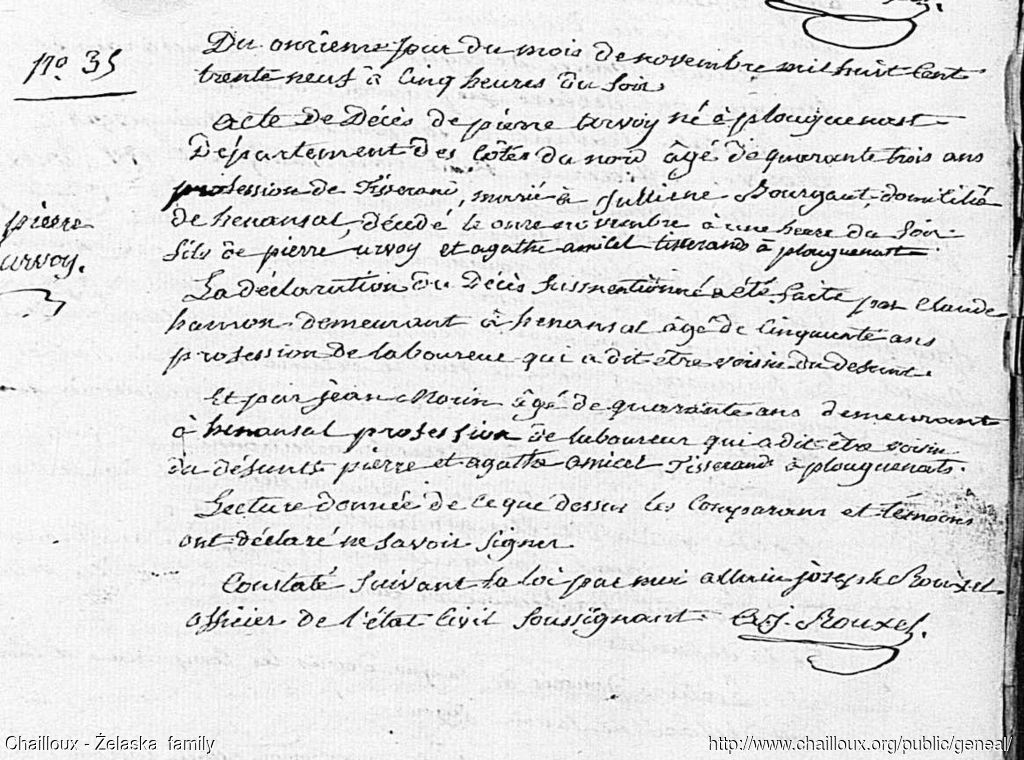 No. 35
Du onzieme jour du mois de novembre mil huit cent
trente neuf à cinq heures du soir
acte de Décès de pierre urvoy né à plouguenast
Département des Côtes du nord âgé de quarante trois ans
profession de Tisserand, marié à Jullienne Bourgaut domicilié
de henansal, décédé le onze novembre à une heure du soir
fils de pierre urvoy et agathe amicel tisserand à plouguenast
pierre
urvoy.
La déclaration du Décès susmentionné a été faite par Claude
hamon demeurant à henansal âgé de Cinquante ans
profession de laboureur qui a dit être voisin du defunt.
Et par jean Morin âgé de quarante ans demeurant
à henansal profession de laboureur qui a dit être voisin
du defunts pierre et agathe amicel Tisserand à plouguenats.
Lecture donnée de ce que dessus les Comparans et témoins
ont déclaré ne savoir signer
Constaté suivant la loi par moi allain joseph Rouxel.
officier de l'état Civil soussignant A. J. Rouxel.
Chailloux - Želaska family
http://www.chailloux.org/public/geneal/